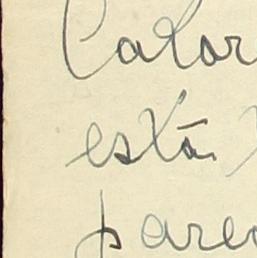 Calor
está
pare